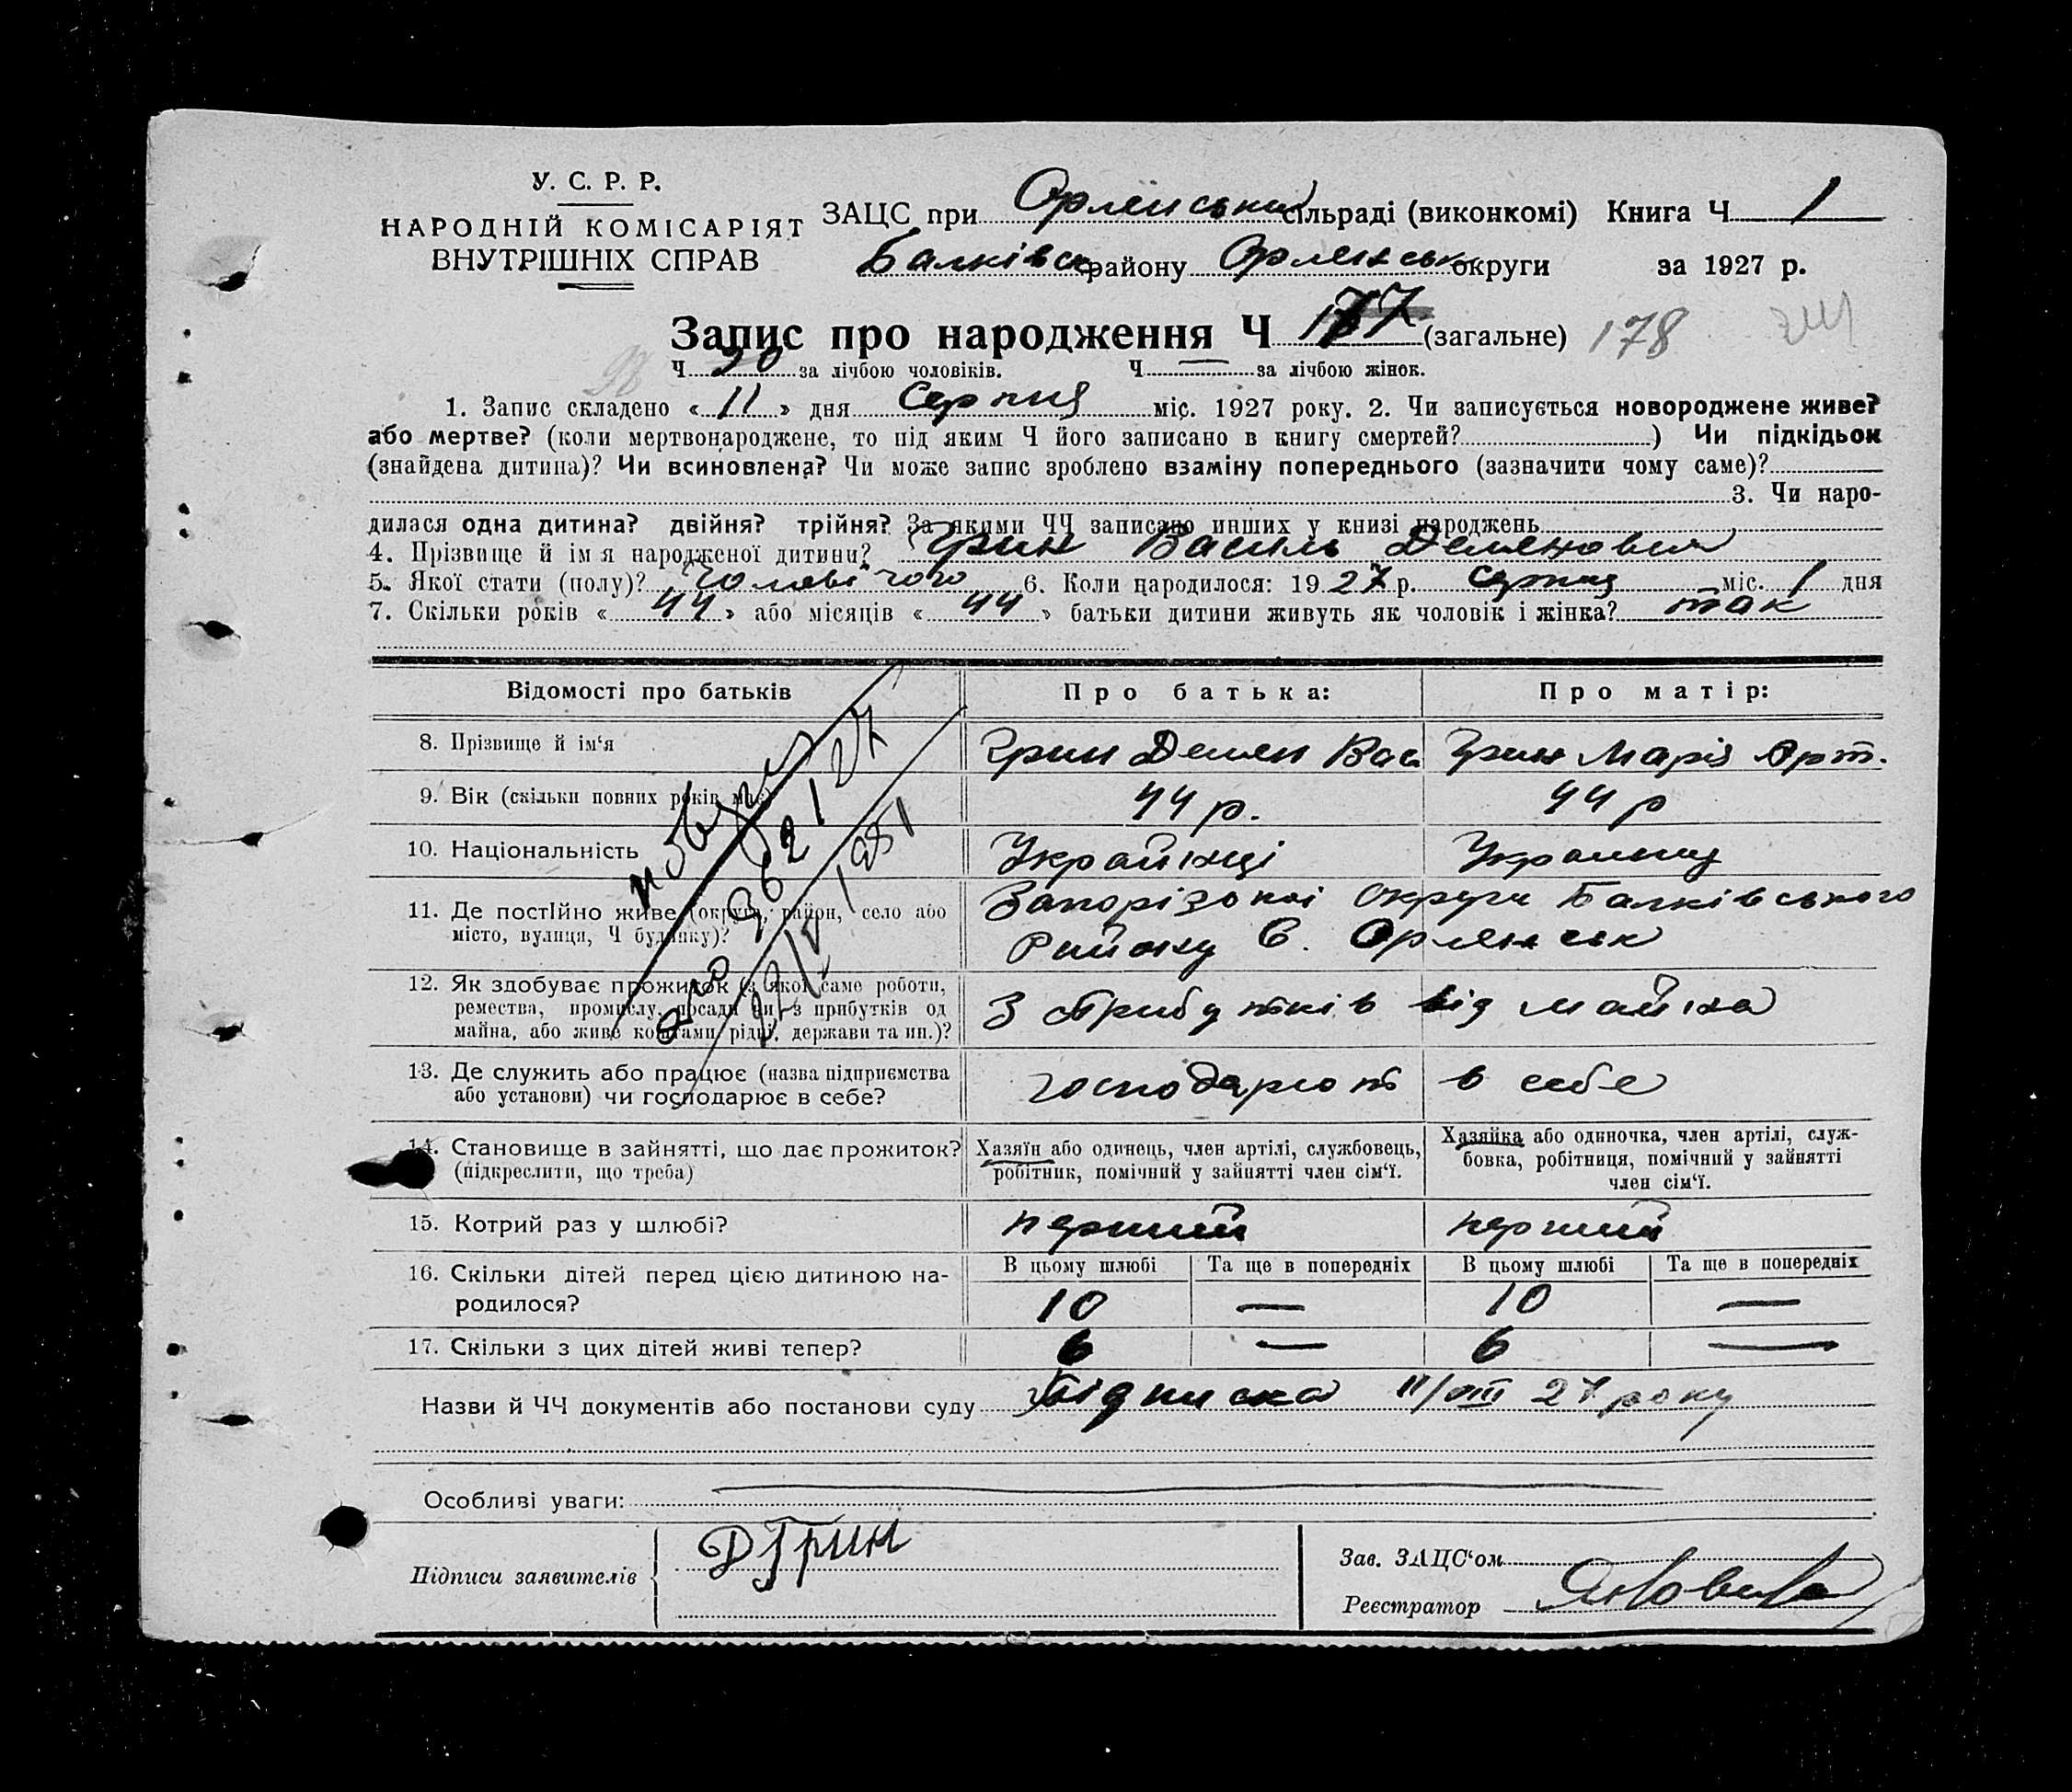 У. С. Р. Р.
НАРОДНІЙ КОМІСАРІЯТ
ВНУТРІШНІХ СПРАВ
ЗАЦС при Орлянський сільраді (виконкомі) Книга Ч 1
Балківск району Орлянськ округи за 1927 р.
Запис про народження Ч 177 (загальне) 178
Ч 90 за лічбою чоловіків. Ч — за лічбою жінок.
1. Запис складено « 11 » дня Серпня міс. 1927 року. 2. Чи записується новороджене живе?
або мертве? (коли мертвонароджене, то під яким Ч його записано в книгу смертей? ) Чи підкідьок
(знайдена дитина)? Чи всиновлена? Чи може запис зроблено взаміну попереднього (зазначити чому саме)?
3. Чи наро-
дилася одна дитина? двійня? трійня? За якими ЧЧ записано инших у книзі народжень
4. Прізвище й ім я народженої дитини? Грин Василь Демянович
5. Якої стати (полу)? Чоловічого 6. Коли народилося: 1927 р. серпня міс. 1 дня
7. Скільки років « 44 » або місяців « 44 » батьки дитини живуть як чоловік і жінка? так
Відомості про батьків Про батька: Про матір:
8. Прізвище й ім‘я Грин Демян Вас Грин Марія Арт.
9. Вік (скільки повних років має) 44 р. 44 р
10. Національність Українці Украинци
11. Де постІйно живе (округа, район, село або
місто, вулиця, Ч будинку)? Запорізокої Округи Балківського
Району С. Орлянськ
12. Як здобуває прожиток (з якої саме роботи,
ремества, промислу, посади чи з прибутків од
майна, або живе коштами рідні, держави та ин.)? З прибутків від майна
13. Де служить або працює (назва підприємства
або установи) чи господарює в себе? господарюют в себе
14. Становище в зайнятті, що дає прожиток?
(підкреслити, що треба)
Хазяїн або одинець, член артілі, службовець,
робітник, помічний у зайнятті член сім‘ї.
Хазяйка або одиночка, член артілі, служ-
бовка, робітниця, помічний у зайнятті
член сім‘ї.
15. Котрий раз у шлюбі? перший перший
16. Скільки дітей перед цією дитиною на-
родилося?
В цьому шлюбі Та ще в попередніх В цьому шлюбі Та ще в попередніх
10 — 10 —
17. Скільки з цих дітей живі тепер? 6 — 6 —
Назви й ЧЧ документів або постанови суду Підписка 11/VIII 27 року
Особливі уваги:
Підписи заявителів ДГрин
Зав. ЗАЦС‘ом
Реєстратор